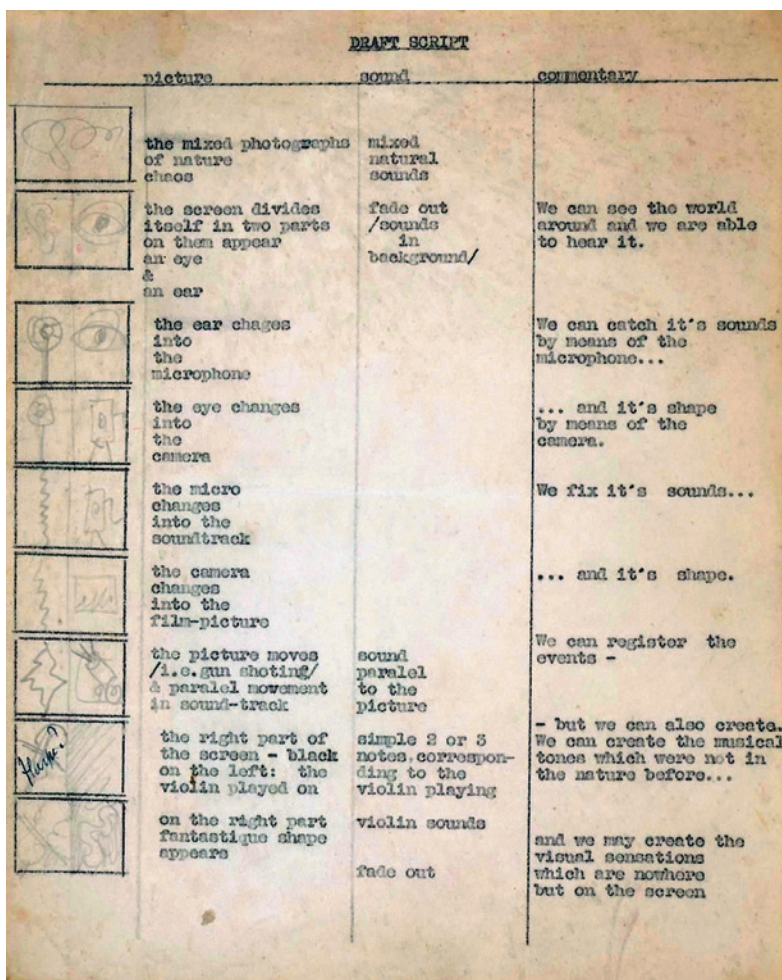 DRAFT SCRIPT
picture sound commentary
the mixed photographs
of nature
chaos
mixed
natural
sounds
the screen divides
itself in two parts
on them appear
an eye
&
an ear
fade out
/sounds
in
background/
We can see the world
around and we are able
to hear it.
the ear chages
into
the
microphone
We can catch it's sounds
by means of the
microphone...
the eye changes
into
the
camera
... and it's shape
by means of the
camera.
the micro
changes
into the
soundtrack
We fix it's sounds...
the camera
changes
into the
film-picture
... and it's shape.
the picture moves
/i.e.gun shoting/
& paralel movement
in sound-track
sound
paralel
to the
picture
We can register the
events -
the right part of
the screen - black
on the left: the
violin played on
simple 2 or 3
notes,correspon-
ding to the
violin playing
- but we can also create.
We can create the musical
tones which were not in
the nature before...
on the right part
fantastique shape
appears
violin sounds
fade out
and we may create the
visual sensations
which are nowhere
but on the screen